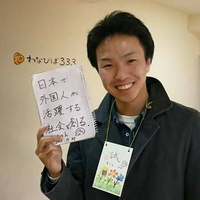 わなびば333
日本で
外国人が
活躍する
社会を創る。